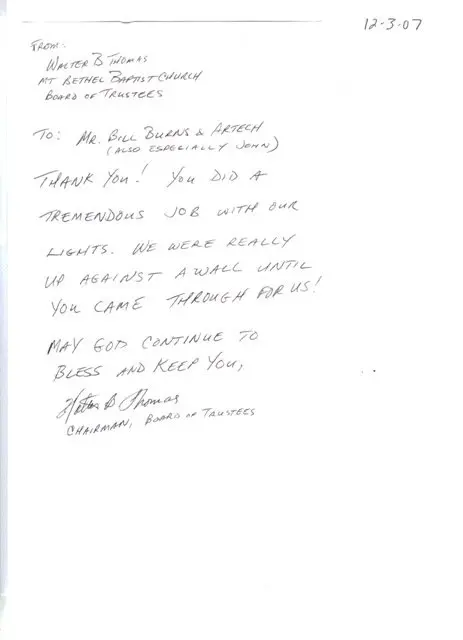 12-3-07
FROM:
WALTER B THOMAS
MT BETHEL BAPTIST CHURCH
BOARD OF TRUSTEES
TO: MR. BILL BURNS & ARTECH
(ALSO ESPECIALLY JOHN)
THANK YOU! YOU DID A
TREMENDOUS JOB WITH OUR
LIGHTS. WE WERE REALLY
UP AGAINST A WALL UNTIL
YOU CAME THROUGH FOR US!
MAY GOD CONTINUE TO
BLESS AND KEEP YOU,
Walter B Thomas
CHAIRMAN, BOARD OF TRUSTEES